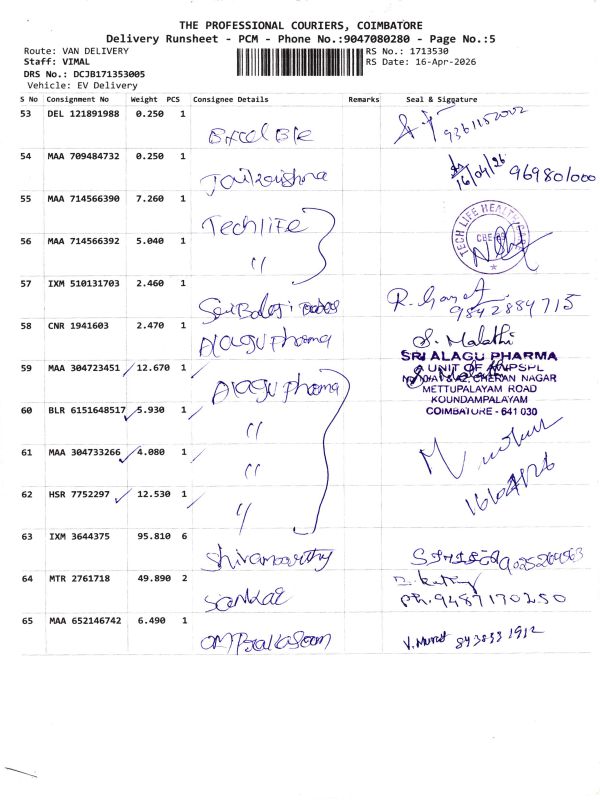 THE PROFESSIONAL COURIERS, COIMBATORE
Delivery Runsheet - PCM - Phone No.:9047080280 - Page No.:5
Route: VAN DELIVERY RS No.: 1713530
Staff: VIMAL RS Date: 16-Apr-2026
DRS No.: DCJB171353005
Vehicle: EV Delivery
S No Consignment No Weight PCS Consignee Details Remarks Seal & Siggature
53 DEL 121891988 0.250 1
Excel
54 MAA 709484732 0.250 1
Jaikrishna 16/04/26 969801000
55 MAA 714566390 7.260 1
Techlife TECH LIFE HEALTH
56 MAA 714566392 5.040 1
"
57 IXM 510131703 2.460 1
Sri Balaji 9842884715
58 CNR 1941603 2.470 1
Alagu pharma S. Malathi
SRI ALAGU PHARMA
A UNIT OF
59 MAA 304723451 12.670 1
Alagu pharma CHERAN NAGAR
METTUPALAYAM ROAD
KOUNDAMPALAYAM
COIMBATORE - 641 030
60 BLR 6151648517 5.930 1
"
61 MAA 304733266 4.080 1
"
62 HSR 7752297 12.530 1
" 16/04/26
63 IXM 3644375 95.810 6
Shivamoorthy
64 MTR 2761718 49.890 2
Ph. 9487170250
65 MAA 652146742 6.490 1
V. Murat